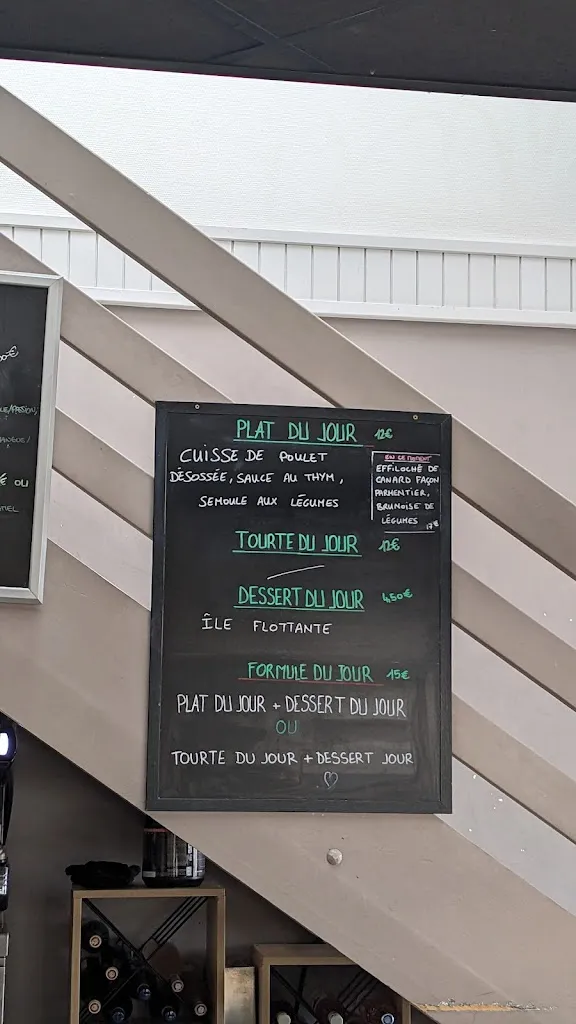 PLAT DU JOUR 12€
CUISSE DE POULET
DÉSOSSÉE, SAUCE AU THYM,
SEMOULE AUX LÉGUMES
EN CE MOMENT
EFFILOCHÉ DE
CANARD FAÇON
PARMENTIER,
BRUNOISE DE
LÉGUMES 17€
TOURTE DU JOUR 12€
DESSERT DU JOUR 4,50€
ÎLE FLOTTANTE
FORMULE DU JOUR 15€
PLAT DU JOUR + DESSERT DU JOUR
OU
TOURTE DU JOUR + DESSERT JOUR
€ OU